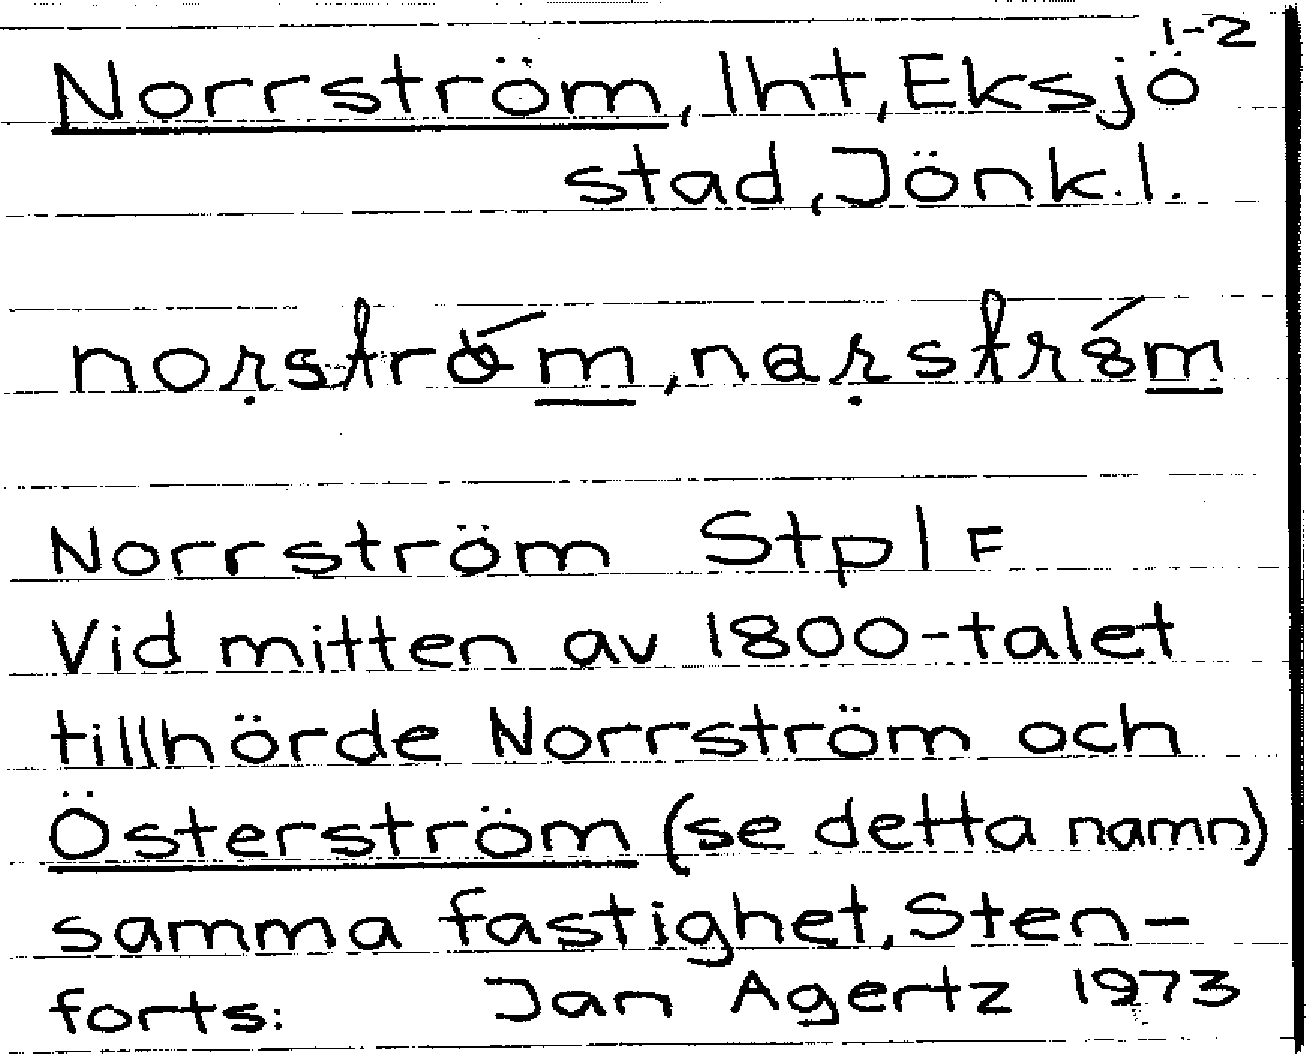 1-2
Norrström, lht, Eksjö
stad, Jönk.l.
Norrström Stpl F
Vid mitten av 1800-talet
tillhörde Norrström och
Österström (se detta namn)
samma fastighet, Sten-
forts: Jan Agertz 1973